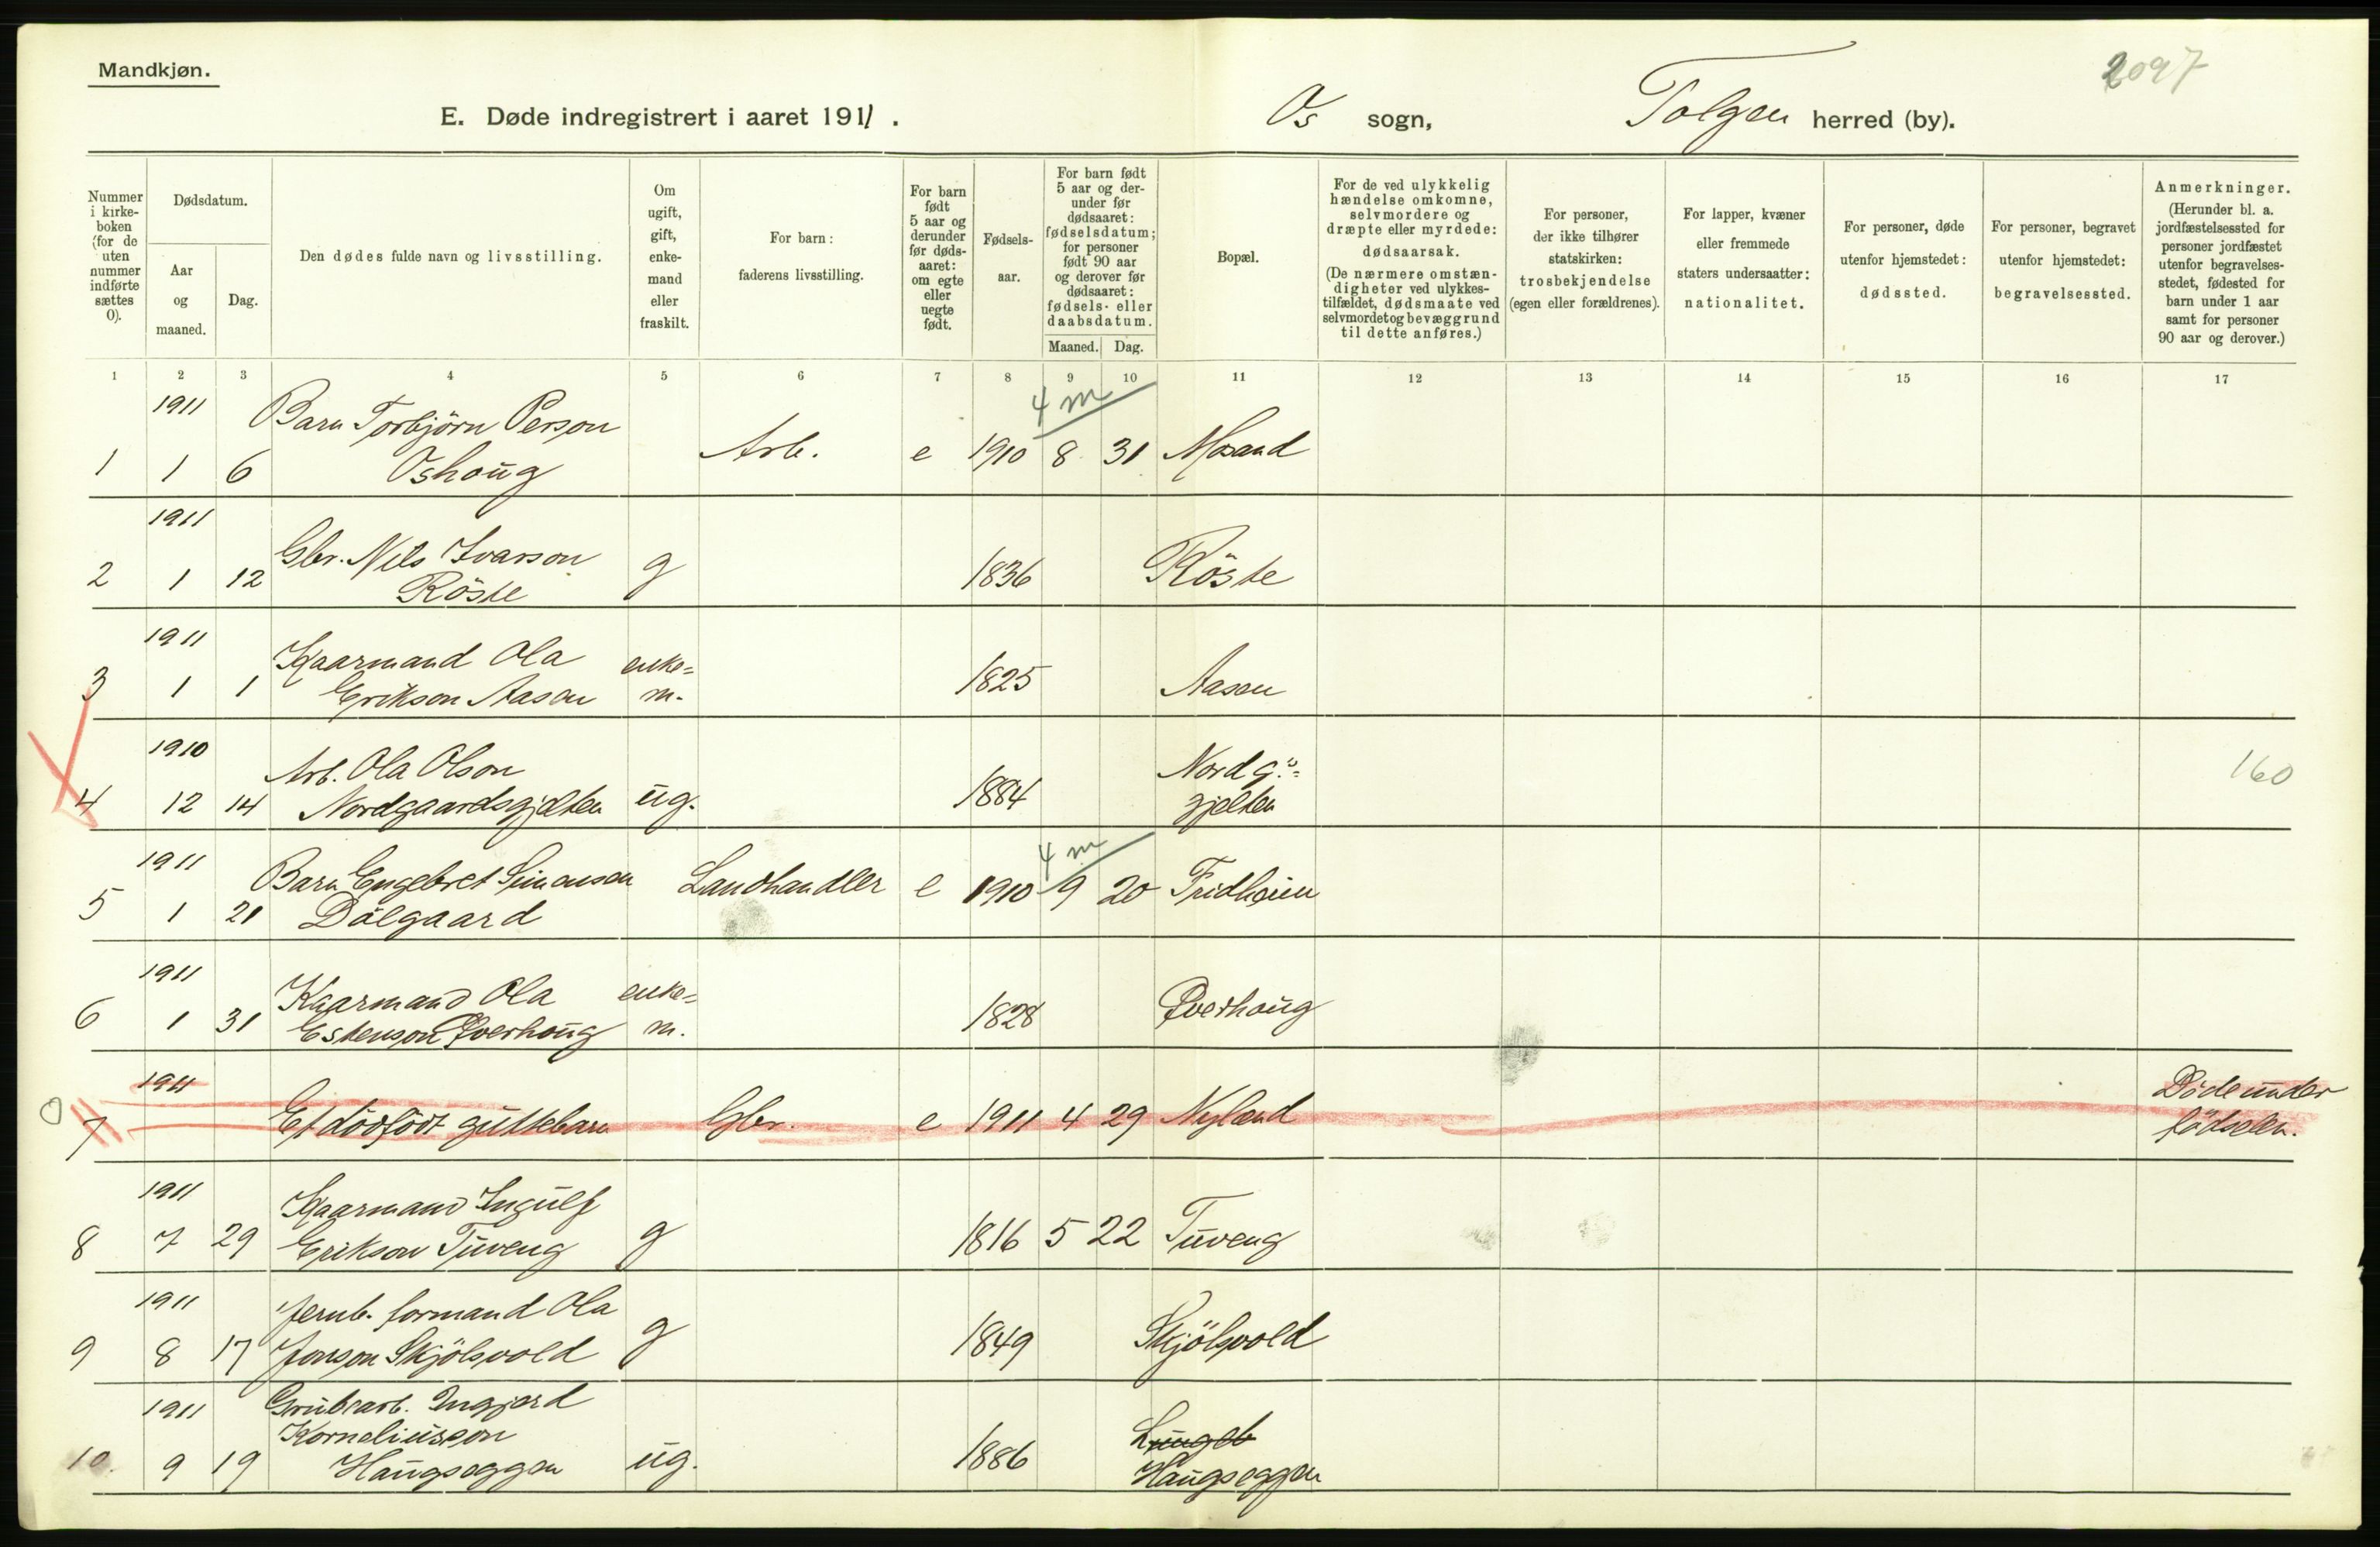 Mandkjøn.
2097
E. Døde indregistrert i aaret 1911. Os sogn, Tolgen herred (by).
Nummer i kirke-boken (for de uten nummer indførte sættes 0).
Dødsdatum.
Aar og maaned.
Dag.
Den dødes fulde navn og livsstilling.
Om ugift, gift, enke-mand eller fraskilt.
For barn: faderens livsstilling.
For barn født 5 aar og derunder før døds-aaret: om egte eller uegte født.
Fødsels-aar.
For barn født 5 aar og der-under før dødsaaret: fødselsdatum; for personer født 90 aar og derover før dødsaaret: fødsels- eller daabsdatum.
Maaned. Dag.
Bopæl.
For de ved ulykkelig hændelse omkomne, selvmordere og dræpte eller myrdede: dødsaarsak. (De nærmere omstæn-digheter ved ulykkes-tilfældet, dødsmaate ved selvmordet og bevæggrund til dette anføres.)
For personer, der ikke tilhører statskirken: trosbekjendelse (egen eller forældrenes).
For lapper, kvæner eller fremmede staters undersaatter: nationalitet.
For personer, døde utenfor hjemstedet: dødssted.
For personer, begravet utenfor hjemstedet: begravelsessted.
Anmerkninger. (Herunder bl. a. jordfæstelsessted for personer jordfæstet utenfor begravelses-stedet, fødested for barn under 1 aar samt for personer 90 aar og derover.)
1 2 3 4 5 6 7 8 9 10 11 12 13 14 15 16 17
1911 Barn Torbjörn Person 4 m
1 1 6 Oshoug Arb. e 1910 8 31 Mosand
1911 Gbr. Nils Ivarson
2 1 12 Röste g 1836 Röste
1911 Kaarmand Ola enke=
3 1 1 Erikson Aasen m. 1825 Aasen
1910 Arb. Ola Olson Nordg.s= 160
4 12 14 Nordgaardsgjelten ug. 1884 gjelten
1911 Barn Engebret Simonson Landhandler e 4 m
5 1 21 Dölgaard 1910 9 20 Fridheim
1911 Kaarmand Ola enke=
6 1 31 Estenson Qverhoug m. 1828 Qverhoug
1911 Döde under
7 Et dödfödt guttebarn Gbr. e 1911 4 29 Nyland födselen.
1911 Kaarmand Ingulf
8 7 29 Erikson Tuveng g 1816 5 22 Tuveng
1911 Jernb. formand Ola
9 8 17 Jonson Skjölsvold g 1849 Skjölsvold
1911 Grubearb. Ingjard
Korneliusson
10. 9 19 Haugseggen ug. 1886 Haugseggen